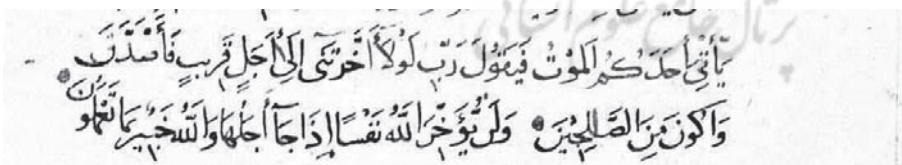 رتال جامع علوم انسانی
يَّأْتِيَ أَحَدَكُمُ الْمَوْتُ فَيَقُولَ رَبِّ لَوْلَا أَخَّرْتَنِى إِلَىٰ أَجَلٍ قَرِيبٍ فَأَصَّدَّقَ
وَاَكُونَ مِنَ الصَّالِحِينَ وَلَنْ يُّؤَخِّرَ اللَّهُ نَفْسًا إِذَا جَآءَ أَجَلُهَا وَاللَّهُ خَبِيرٌ بِمَا تَعْمَلُونَ